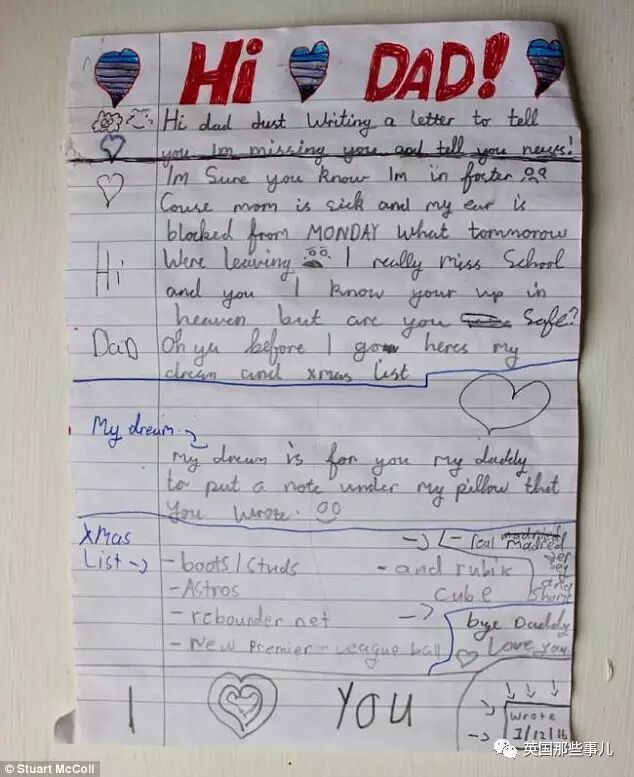 Hi DAD!
Hi dad Just Writing a letter to tell
you Im missing you and tell you news!
Im Sure you know Im in foster
Couse mom is sick and my ear is
blocked from MONDAY What tommorow
Hi
Were leaving I really miss School
and you I know your up in
heaven but are you Safe?
DaD
Oh ya before I go heres my
dream and xmas list
My dream
My dream is for you my daddy
to put a note under my pillow that
you wrote.
Xmas
List
- boots/studs
- Astros
- rebounder net
- New Premier-League ball
- real madred
jersey
and
Short
- and rubix
cube
bye Daddy
Love you
I YOU
wrote
1/12/16
© Stuart McColl
英国那些事儿